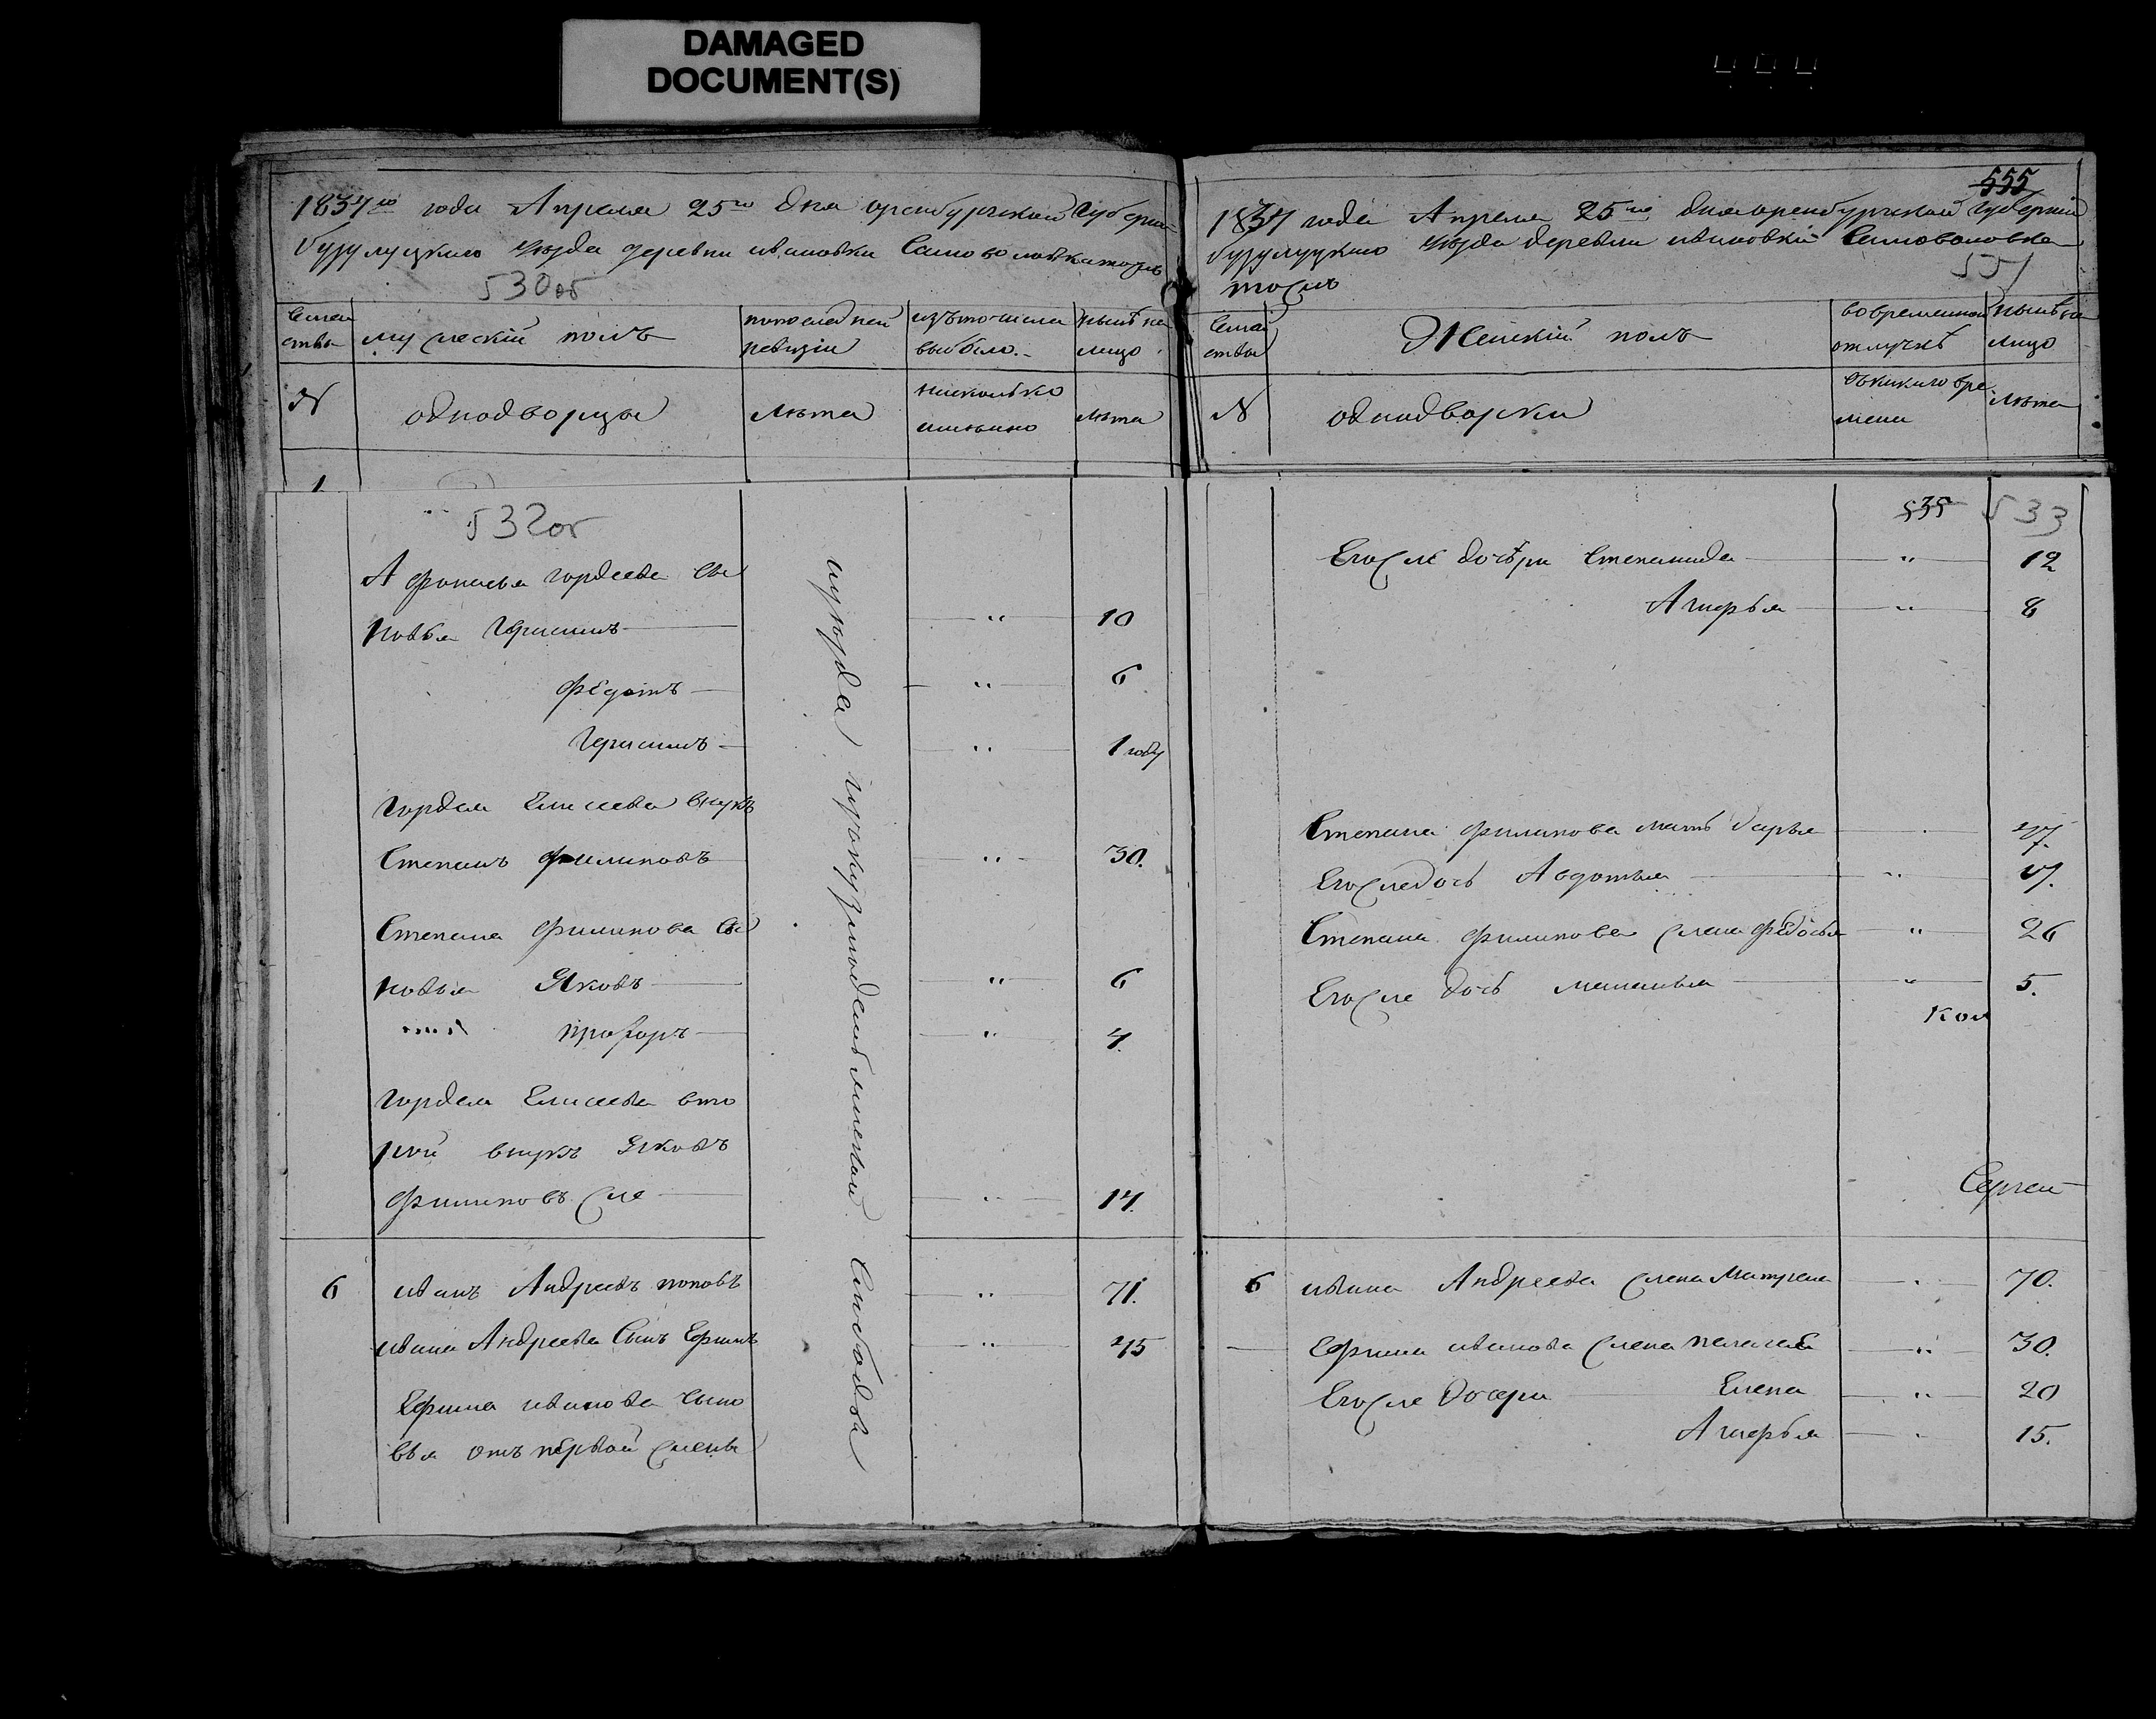 DAMAGED
DOCUMENT(S)
1837го года Апреля 25го дня оренбургской Губерни
бузулуцкого уезда деревни ивановки Самоволовка тожъ
530об
Семей
ства
мужеский полъ
по последней
ревизии
изъ того числа
выбыло.
ныне на
лицо
№
однодворцы
лета
лета
1
532об
Афонасья гордеева сы
новья Герасимъ 10
Федотъ 6
Герасимъ 1 году
Гордея Елисеева внукъ
Степанъ филиповъ 30.
Степана филипова сы
новья Яковъ 6
прохоръ 4.
гордея Елисеева вто
рой внукъ Яковъ
филиповъ же 14.
6 иванъ Андреевъ поповъ 71.
ивана Андреева Сынъ Ефимъ 45
Ефима иванова сыно
вья отъ первой жены
уезда
слобода
555
1837 года Апреля 25го дня оренбургской губернии
бузулуцкого уезда деревни ивановки Самоволовка
тожъ
531
Семей
ства
Женский полъ
во временной
отлучке
ныне на
лицо
№
однодворки
съ какого вре
мени
лета
535 533
Его же дочери Степанида 12
Агафья 8
Степана филипова мать дарья
Его же дочь Авдотья
Степана филипова жена федосья 26
Его же дочь маланья 5.
Кол
Сергей
6 ивана Андреева жена Матрена 70.
Ефима иванова жена пелагея 30.
Его же дочери Елена 20
Агафья 15.